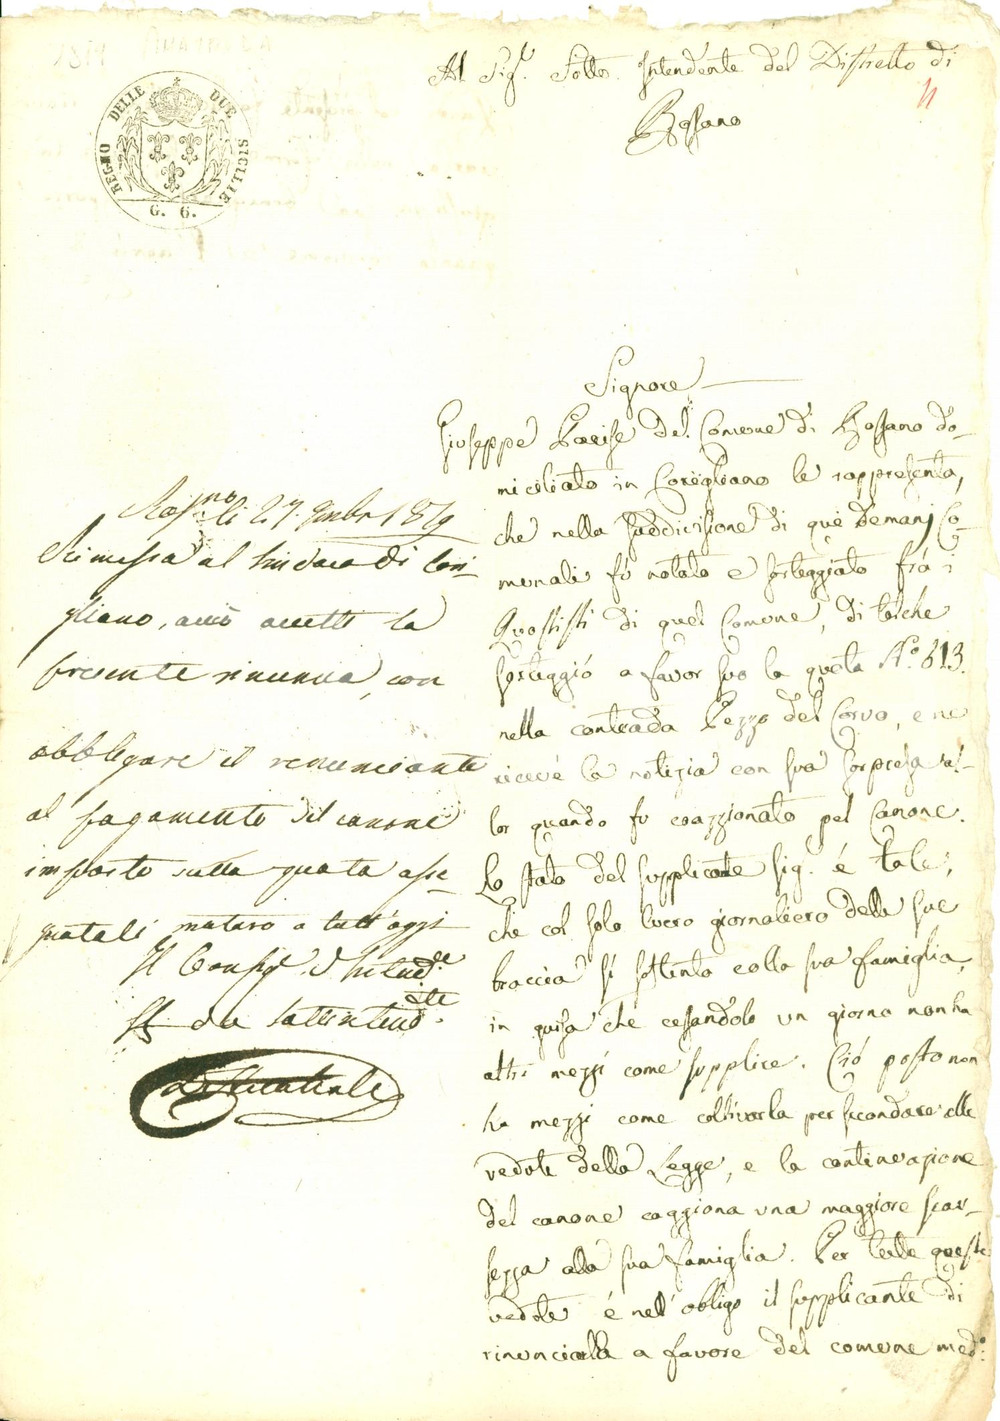 REGNO DELLE DUE SICILIE
G. 6.
Al Sig.r Sotto Intendente del Distretto di
Rossano
Signore
Giuseppe Parise del Comune di Rossano do-
miciliato in Corigliano le rappresenta,
che nella suddivisione di quei Demanj Co-
munali fù notato e sorteggiato frà i
Quotisti di quel Comune, di talche
sorteggió a favor suo la quota N.o 613.
nella contrada Pezzo del Corvo, e ne
riceve la notizia con sua sorpresa al-
lor quando fu coazzionato pel Canone.
Lo stato del supplicante Sig.r é tale,
che col solo lucro giornaliero delle sue
braccia si sostenta colla sua famiglia,
in guisa che cessandolo un giorno non ha
altri mezzi come supplire. Ció posto non
ha mezzi come coltivarla per secondare alle
vedute della Legge, e la continuazione
del canone caggiona una maggiore scar-
sezza alla sua famiglia. Per tutte queste
vedute é nell'obbligo il supplicante di
rinunciarla a favore del comune med.o
li 27. 1819
Rimessa al Sindaco di Cori-
gliano, acciò accetti la
presente rinuncia, con
obbligare il renunciante
al pagamento del canone
imposto sulla quota asse-
gnatali maturo a tutt'oggi
Il Consig.e d'Intend.e
ff. da Sottintend.te